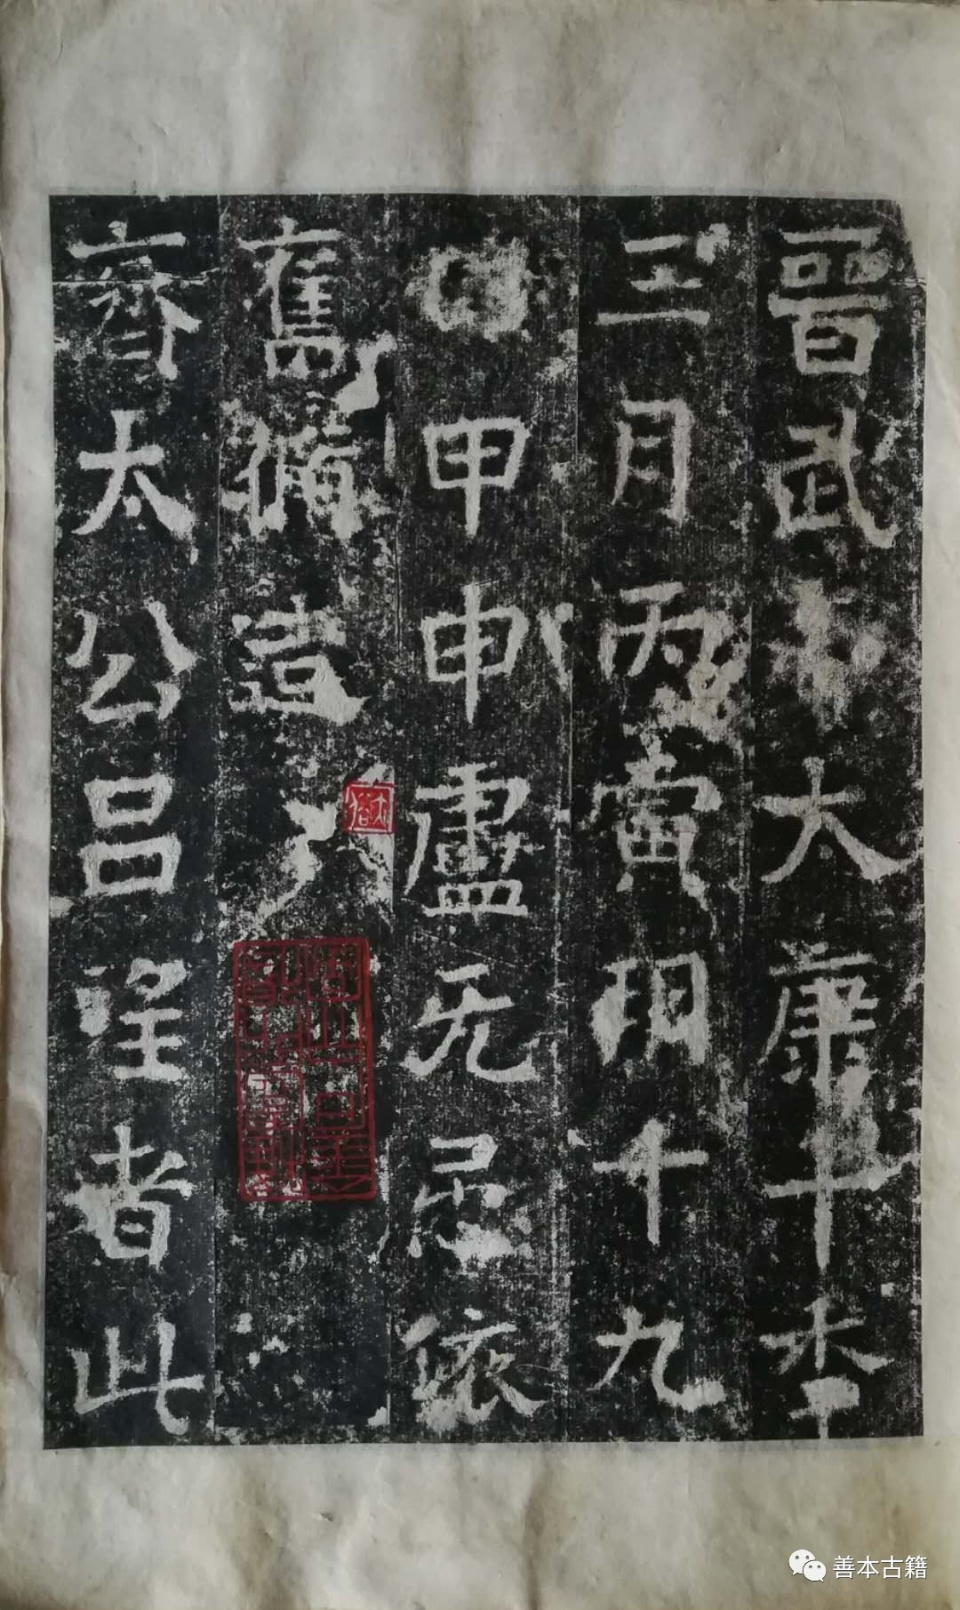 晉武帝太康十年
三月丙寅朔十九
日甲申盧无忌依
舊脩造
齊太公呂望者此
善本古籍